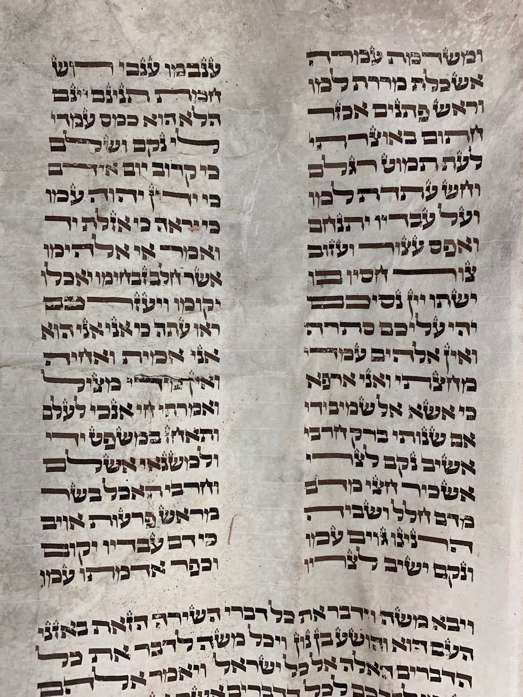 ומשדמת עמרה ענבמו ענבי רוש
אשכלת מררת למו חמת תנינם יינם
וראש פתנים אכזר הלא הוא כמס עמדי
חתום באוצרתי לי נקם ושלם
לעת תמוט רגלם כי קרוב יום אידם
וחש עתדת למו כי ידין יהוה עמו
ועל עבדיו יתנחם כי יראה כי אזלת יד
ואפס עצור ועזוב ואמר אי אלהימו
צור חסיו בו אשר חלב זבחימו יאכלו
ישתו יין נסיכם יקומו ויעזרכם
יהי עליכם סתרה ראו עתה כי אני אני הוא
ואין אלהים עמדי אני אמית ואחיה
מחצתי ואני ארפא ואין מידי מציל
כי אשא אל שמים ידי ואמרתי חי אנכי לעלם
אם שנותי ברק חרבי ותאחז במשפט ידי
אשיב נקם לצרי ולמשנאי אשלם
אשכיר חצי מדם וחרבי תאכל בשר
מדם חלל ושביה מראש פרעות אויב
הרנינו גוים עמו כי דם עבדיו יקום
ונקם ישיב לצריו וכפר אדמתו עמו
ויבא משה וידבר את כל דברי השירה הזאת באזני
העם הוא והושע בן נון ויכל משה לדבר את כל
הדברים האלה אל כל ישראל ויאמר אלהם